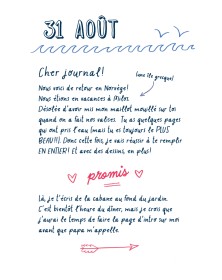 31 AOÛT
Cher journal!
(une île grecque)
Nous voici de retour en Norvège!
Nous étions en vacances à Milos.
Désolée d'avoir mis mon maillot mouillé sur toi
quand on a fait nos valises. Tu as quelques pages
qui ont pris l'eau (mais tu es toujours le PLUS
BEAU!!). Donc cette fois, je vais réussir à te remplir
EN ENTIER! Et avec des dessins, en plus!
promis
Là, je t'écris de la cabane au fond du jardin.
C'est bientôt l'heure du dîner, mais je crois que
j'aurai le temps de faire la page d'intro sur moi
avant que papa m'appelle.